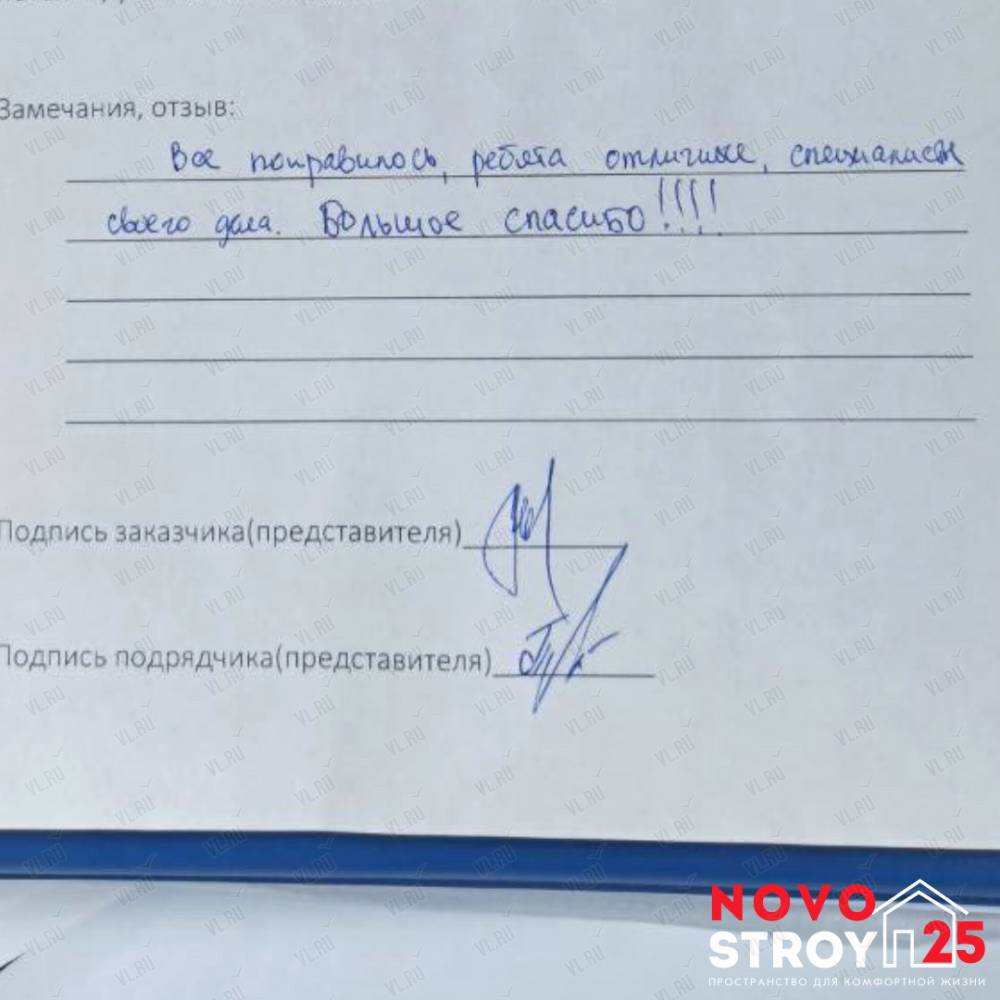 Замечания, отзыв:
Все понравилось, ребята отличные, специалисты
своего дела. Большое спасибо!!!!
Подпись заказчика(представителя)
Подпись подрядчика(представителя)
NOVO
STROY 25
ПРОСТРАНСТВО ДЛЯ КОМФОРТНОЙ ЖИЗНИ
VL.RU